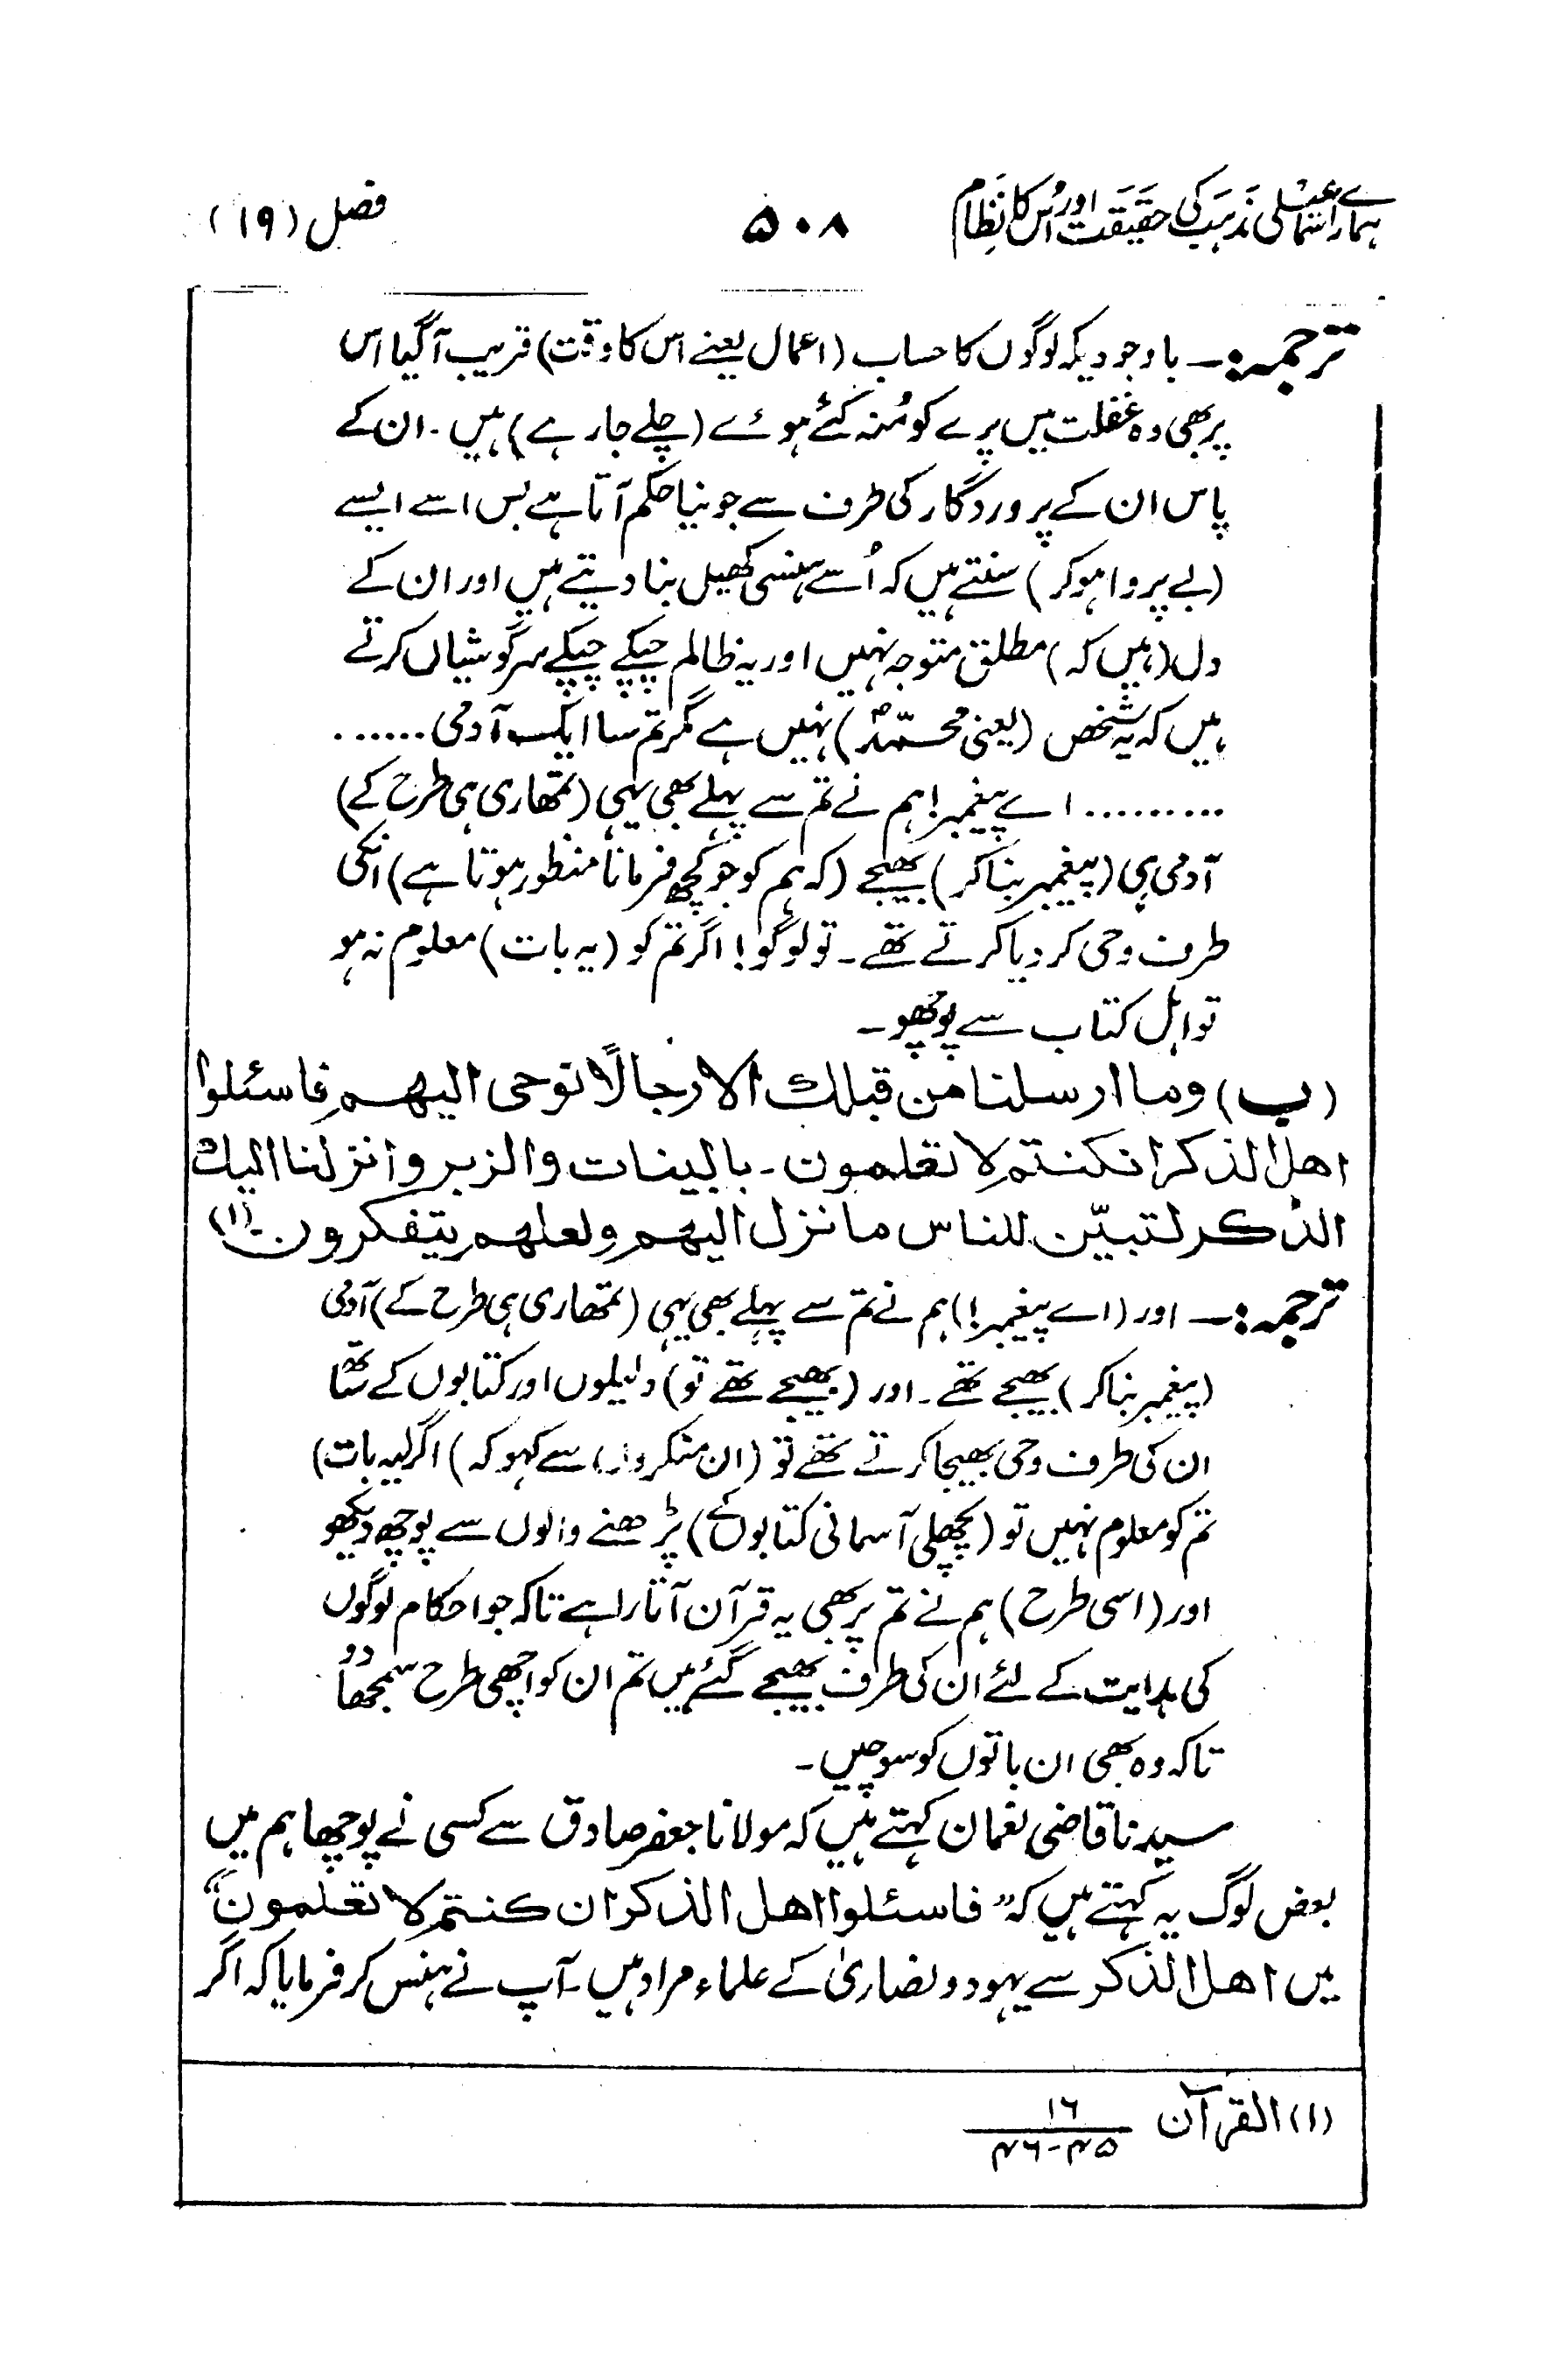 ہمارے اسماعیلی مذہب کی حقیقت اور اُس کا نظام ۵۰۸ فصل (۱۹)
ترجمہ:۔ باوجودیکہ لوگوں کا حساب (اعمال یعنے اس کا وقت) قریب آگیا اس
پر بھی وہ غفلت میں پرے کو مُنہ کئے ہوئے (چلے جارہے) ہیں۔ ان کے
پاس ان کے پروردگار کی طرف سے جو نیا حکم آتا ہے بس اسے ایسے
(بے پروا ہوکر) سنتے ہیں کہ اُسے ہنسی کھیل بنا دیتے ہیں اور ان کے
دل (ہیں کہ) مطلق متوجہ نہیں اور یہ ظالم چپکے چپکے سرگوشیاں کرتے
ہیں کہ یہ شخص (یعنی محمّدؐ) نہیں ہے مگر تم سا ایک آدمی ......
......... اے پیغمبر! ہم نے تم سے پہلے بھی یہی (تمھاری ہی طرح کے)
آدمی ہی (پیغمبر بنا کر) بھیجے (کہ ہم کو جو کچھ فرمانا منظور ہوتا ہے) انکی
طرف وحی کر دیا کرتے تھے۔ تو لوگو! اگر تم کو (یہ بات) معلوم نہ ہو
تو اہل کتاب سے پوچھو۔
(ب) وما ارسلنا من قبلك الا رجالًا نوحى اليهم فاسئلوا
اهل الذكر انكنتم لا تعلمون۔ بالبينات والزبر وانزلنا اليك
الذكر لتبيّن للناس ما نزل اليهم ولعلهم يتفكرون (۱)
ترجمہ:۔ اور (اے پیغمبر!) ہم نے تم سے پہلے بھی یہی (تمھاری ہی طرح کے) آدمی
(پیغمبر بنا کر) بھیجے تھے۔ اور (بھیجے تھے تو) دلیلوں اور کتابوں کے ساتھ
ان کی طرف وحی بھیجا کرتے تھے تو (ان منکروں سے کہو کہ) اگر (یہ بات)
تم کو معلوم نہیں تو (پچھلی آسمانی کتابوں کے) پڑھنے والوں سے پوچھ دیکھو
اور (اسی طرح) ہم نے تم پر بھی یہ قرآن اتارا ہے تاکہ جو احکام لوگوں
کی ہدایت کے لئے ان کی طرف بھیجے گئے ہیں تم ان کو اچھی طرح سمجھا دو
تاکہ وہ بھی ان باتوں کو سوچیں۔
سیدنا قاضی نعمان کہتے ہیں کہ مولانا جعفر صادق سے کسی نے پوچھا ہم میں
بعض لوگ یہ کہتے ہیں کہ ”فاسئلوا اهل الذكر ان كنتم لا تعلمون“
میں اهل الذكر سے یہود و نصاریٰ کے علماء مراد ہیں۔ آپ نے ہنس کر فرمایا کہ اگر
(۱) القرآن ۱۶
۴۵-۴۶